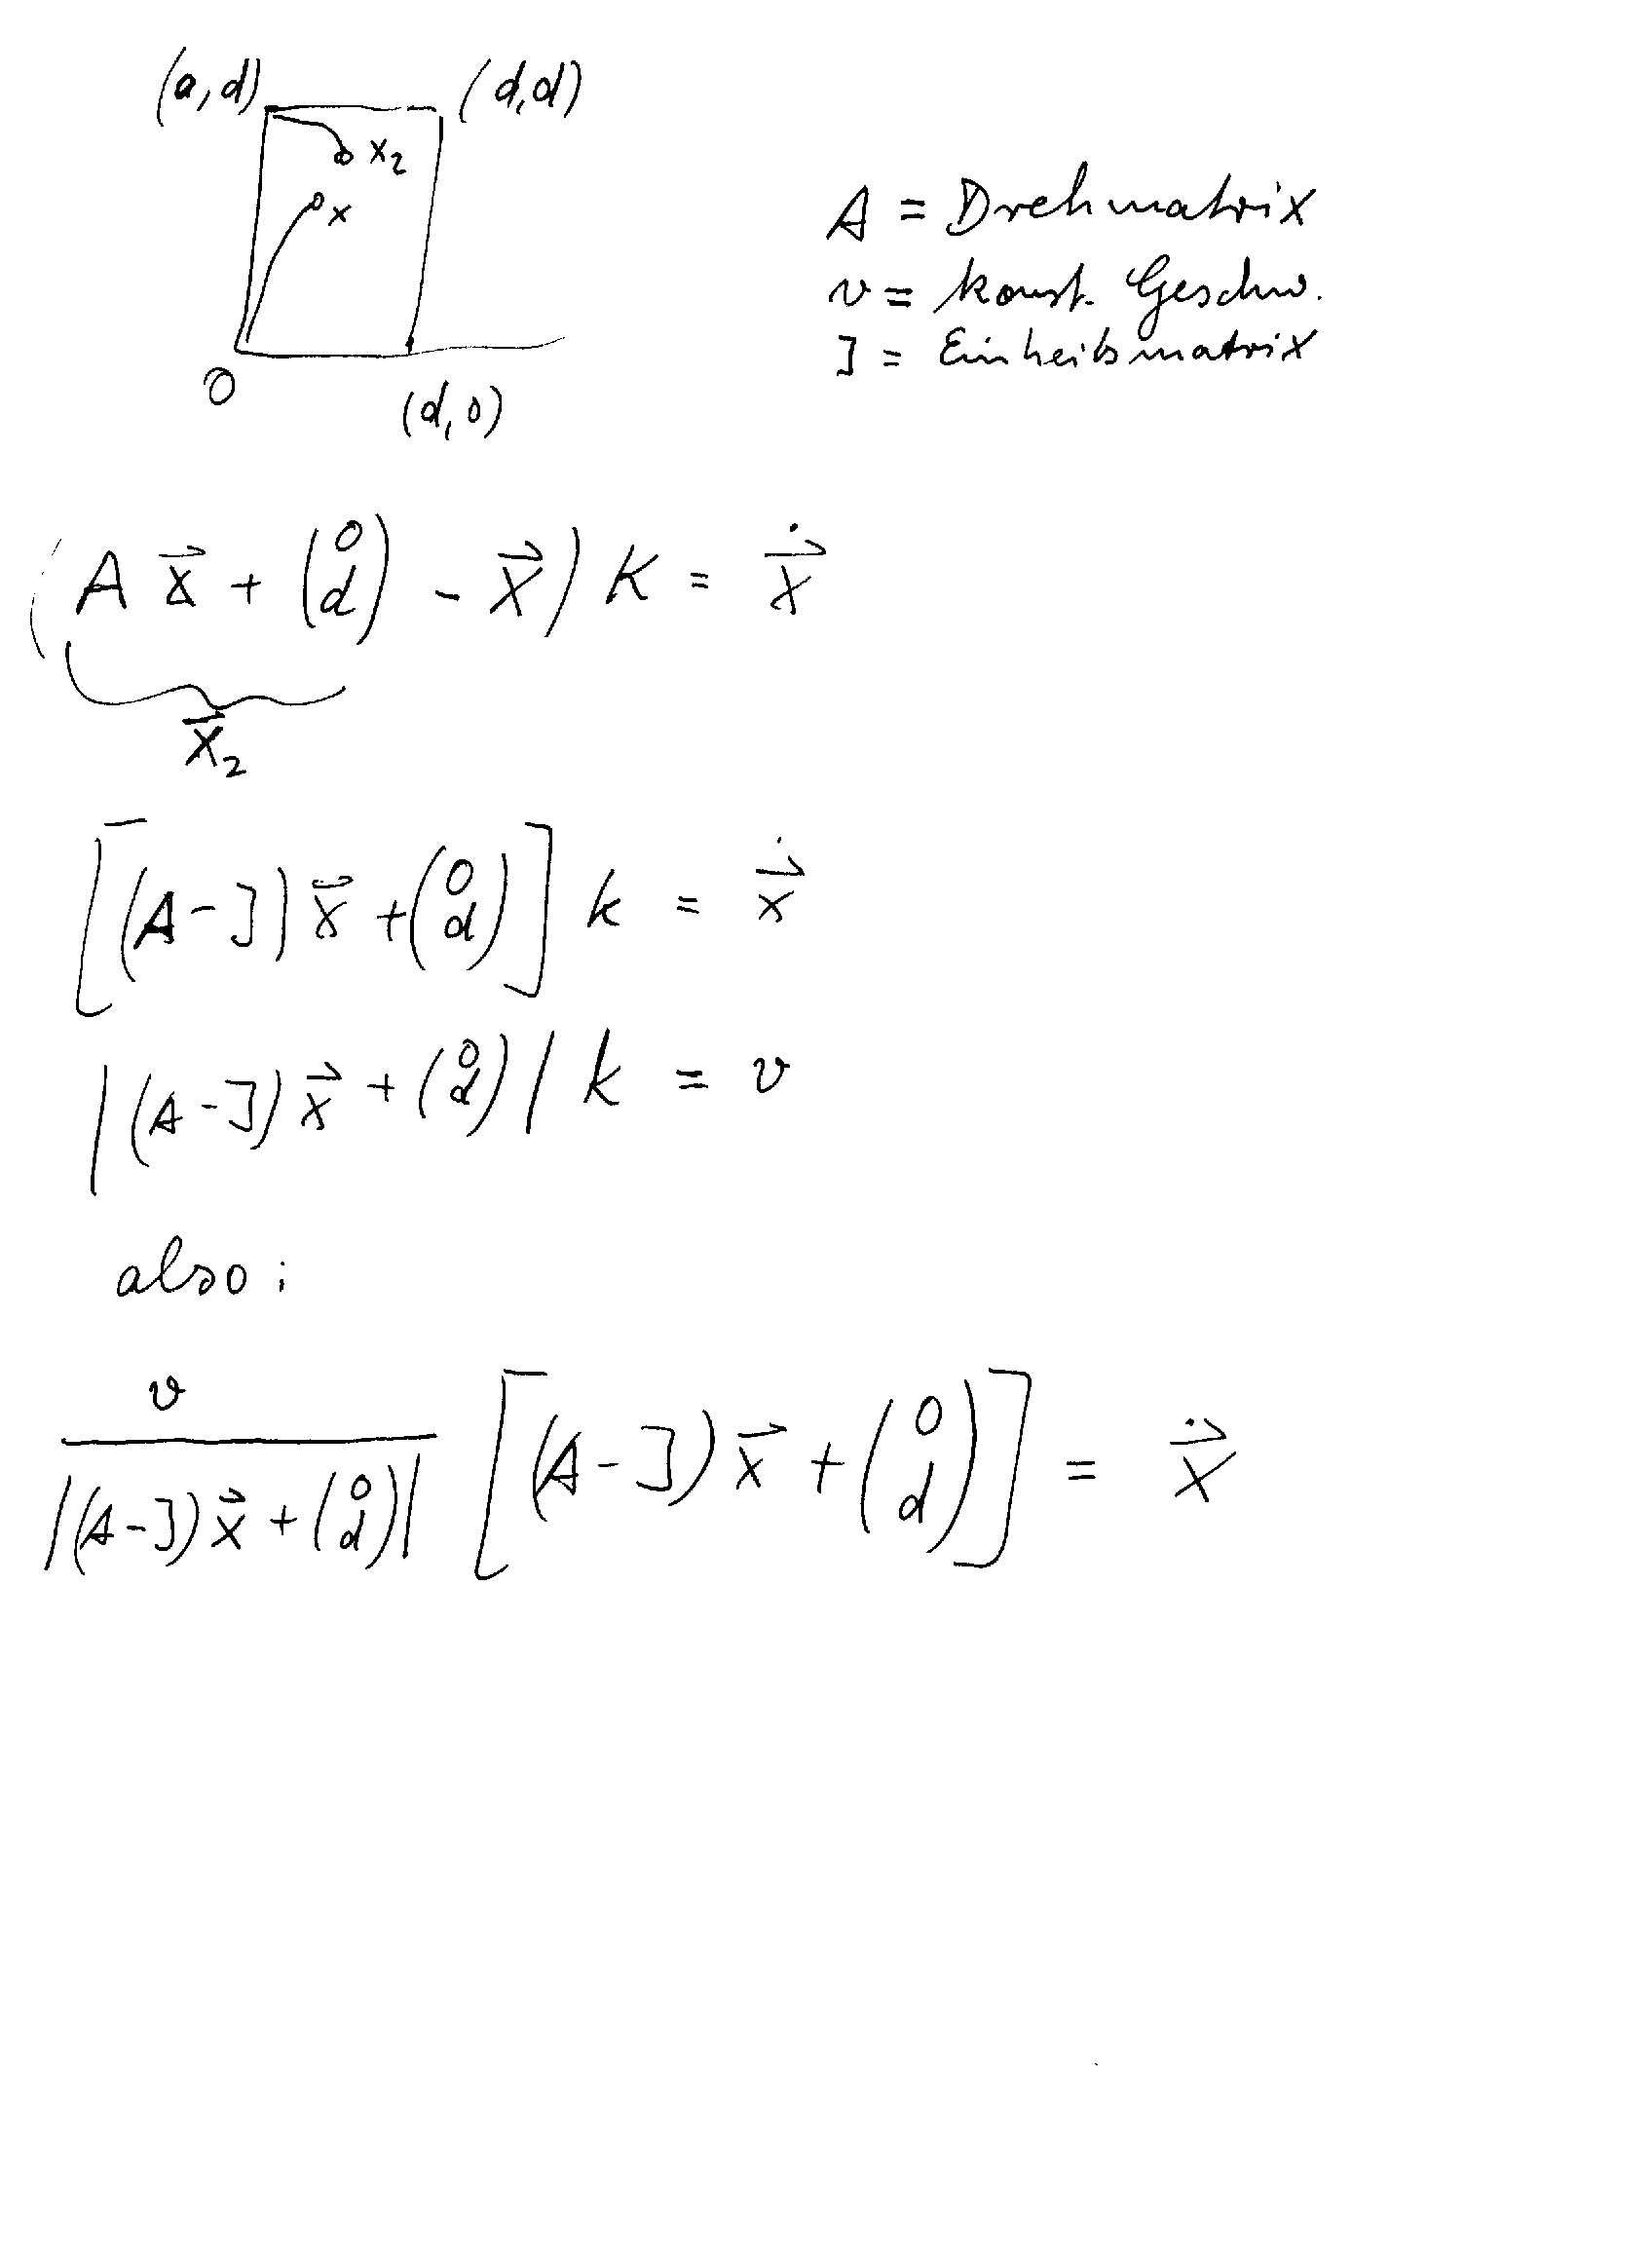 (0,d) (d,d)
x₂
x
A = Drehmatrix
v = konst. Geschw.
I = Einheitsmatrix
O
(d,0)
(A x⃗ + (0 d) - x⃗) K = ẋ⃗
x⃗₂
[(A-I) x⃗ + (0 d)] k = ẋ⃗
|(A-I) x⃗ + (0 d)| k = v
also:
v / |(A-I) x⃗ + (0 d)| [(A-I) x⃗ + (0 d)] = ẋ⃗